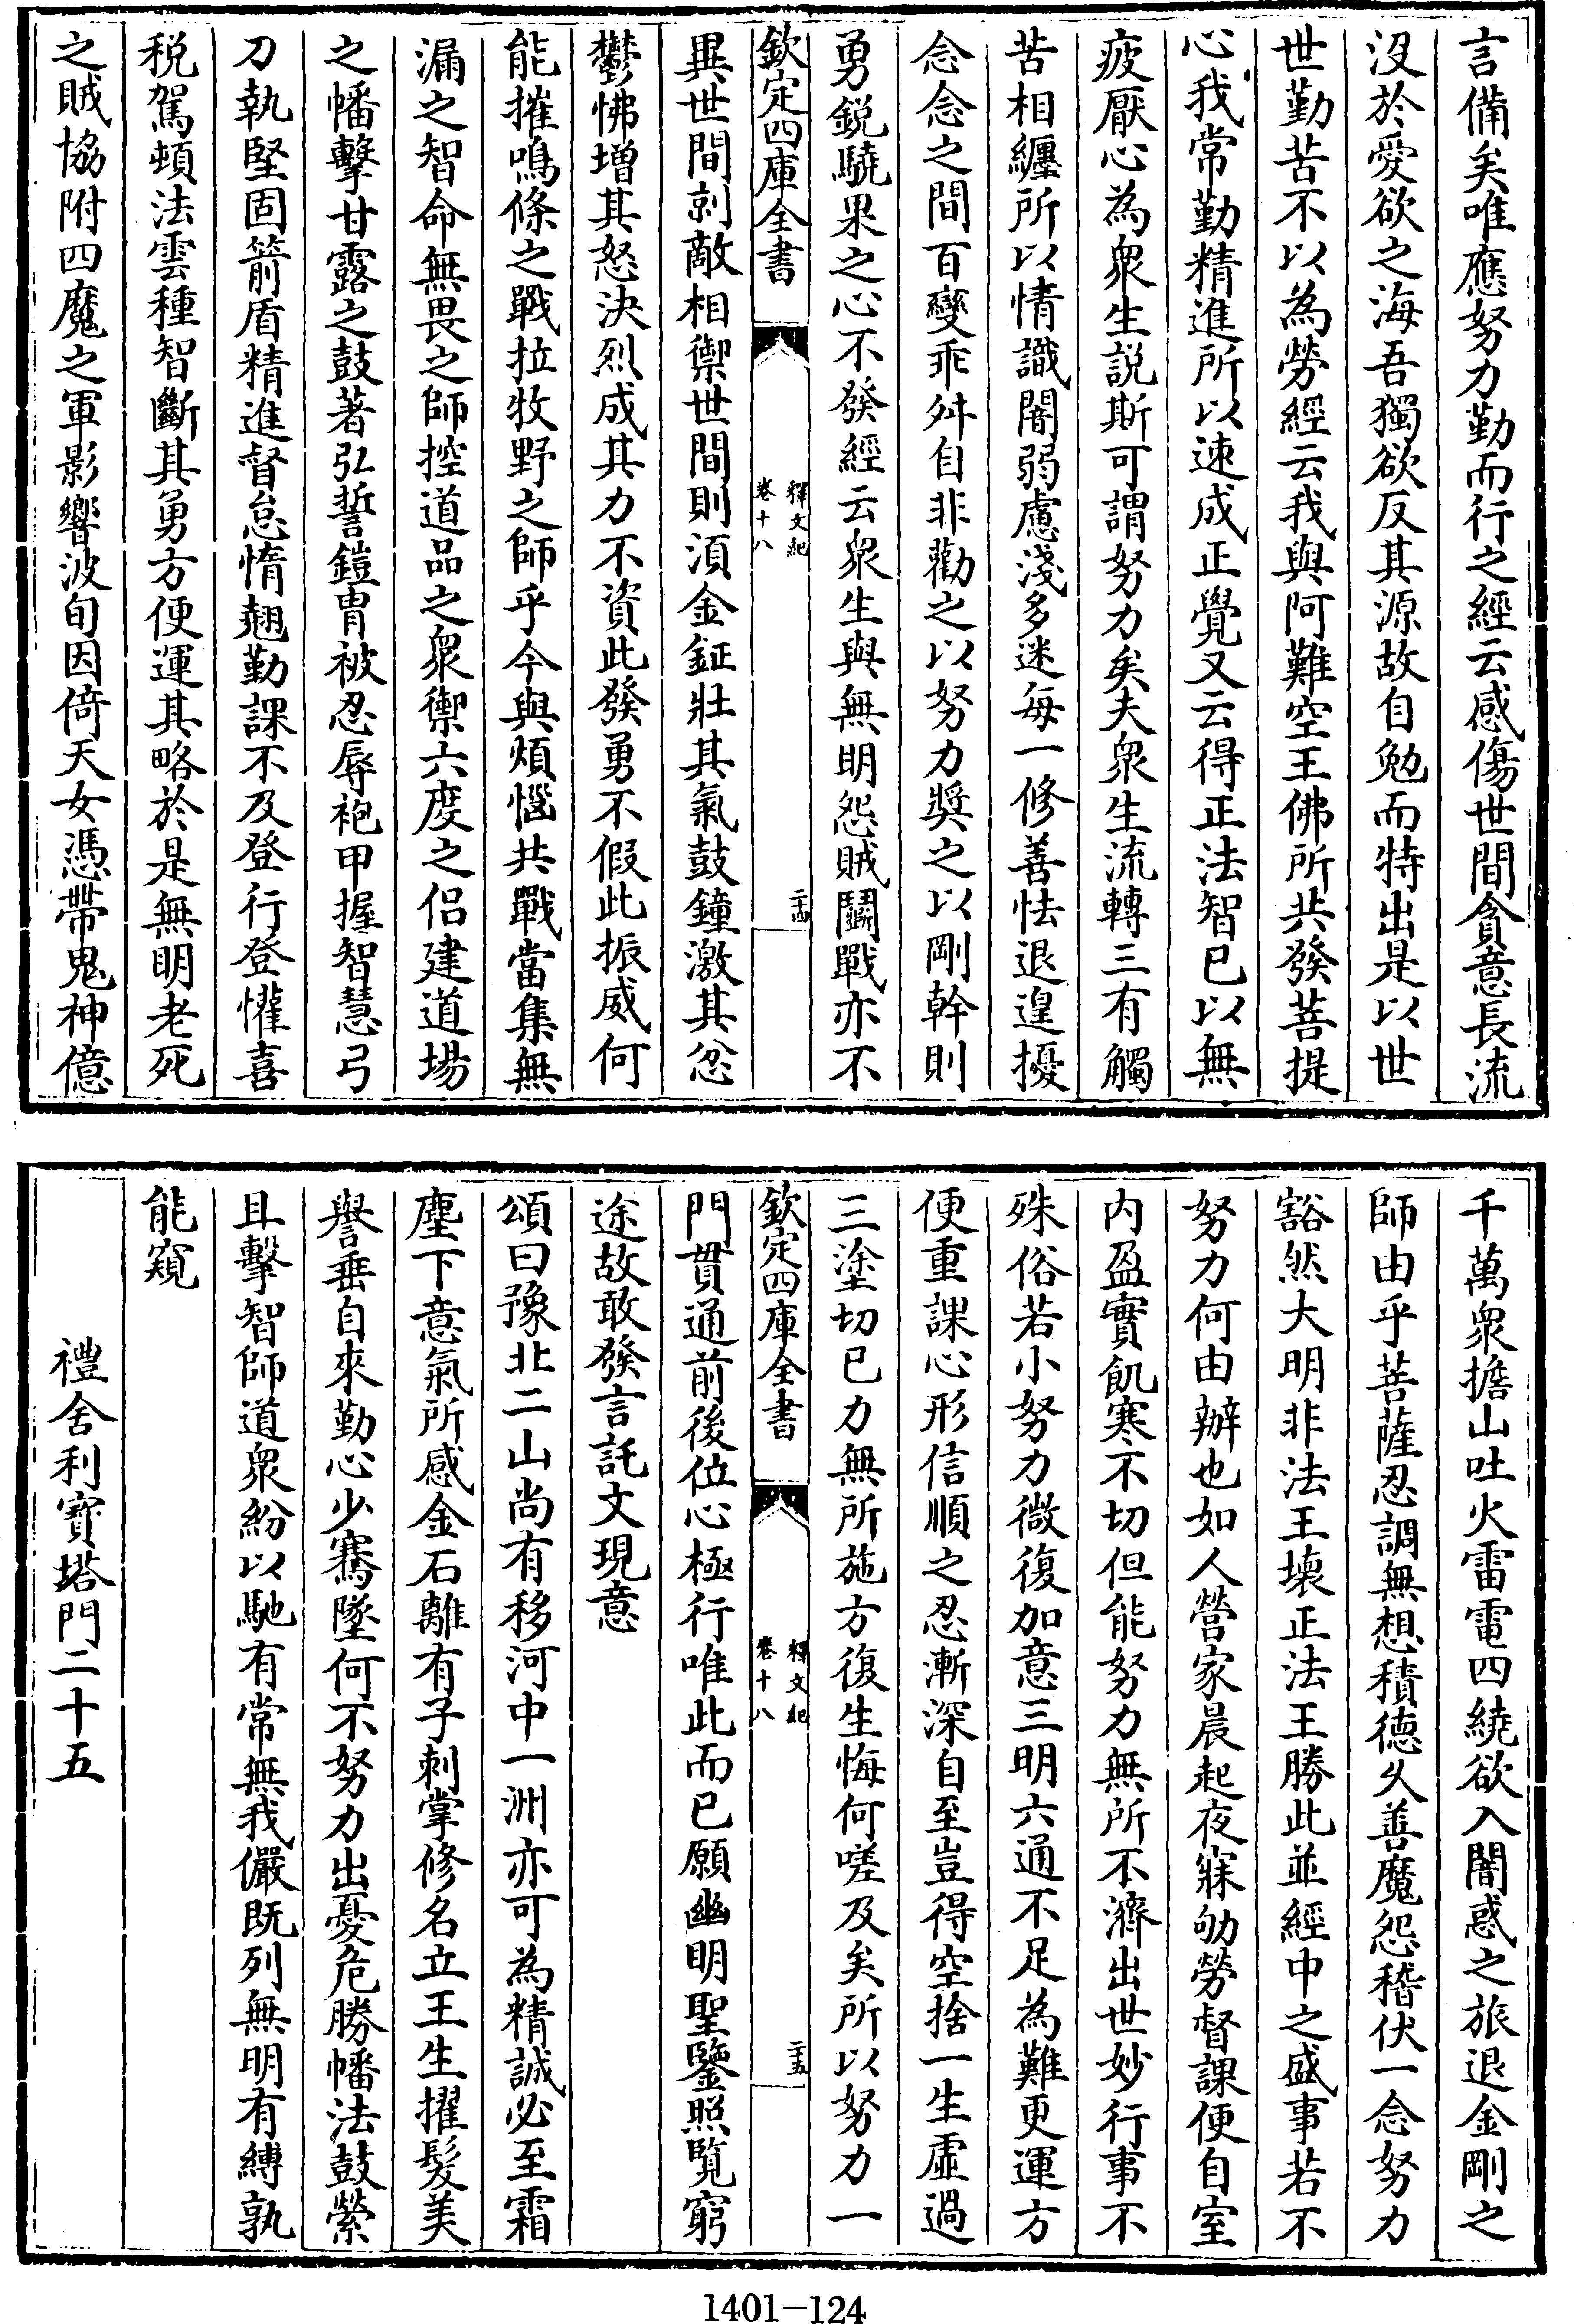 言備矣唯應努力勤而行之經云感傷世間貪意長流
沒於愛欲之海吾獨欲反其源故自勉而特出是以世
世勤苦不以為勞經云我與阿難空王佛所共發菩提
心我常勤精進所以速成正覺又云得正法智已以無
疲厭心為衆生説斯可謂努力矣夫衆生流轉三有觸
苦相纒所以情識闇弱慮淺多迷每一修善怯退遑擾
念念之間百變乖舛自非勸之以努力奬之以剛幹則
勇鋭驍果之心不發經云衆生與無明怨賊鬭戰亦不
欽定四庫全書
釋文紀
卷十八
二十四
異世間剋敵相禦世間則須金鉦壯其氣鼓鐘激其忿
鬱怫增其怒決烈成其力不資此發勇不假此振威何
能摧鳴條之戰拉牧野之師乎今與煩惱共戰當集無
漏之智命無畏之師控道品之衆禦六度之侶建道場
之幡擊甘露之鼓著弘誓鎧冑被忍辱袍甲握智慧弓
刀執堅固箭盾精進督怠惰翹勤課不及登行登懽喜
税駕頓法雲種智斷其勇方便運其略於是無明老死
之賊協附四魔之軍影響波旬因倚天女憑帶鬼神億
千萬衆擔山吐火雷電四繞欲入闇惑之旅退金剛之
師由乎菩薩忍調無想積德久善魔怨稽伏一念努力
豁然大明非法王壞正法王勝此並經中之盛事若不
努力何由辦也如人營家晨起夜寐劬勞督課便自室
内盈實飢寒不切但能努力無所不濟出世妙行事不
殊俗若小努力微復加意三明六通不足為難更運方
便重課心形信順之忍漸深自至豈得空捨一生虛過
三塗切已力無所施方復生悔何嗟及矣所以努力一
欽定四庫全書
釋文紀
卷十八
二十五
門貫通前後位心極行唯此而已願幽明聖鑒照覽窮
途故敢發言託文現意
頌曰豫北二山尚有移河中一洲亦可為精誠必至霜
塵下意氣所感金石離有子刺掌修名立王生擢髮美
譽垂自來勤心少騫墜何不努力出憂危勝幡法鼓縈
且擊智師道衆紛以馳有常無我儼既列無明有縛孰
能窺
禮舍利寶塔門二十五
1401—124